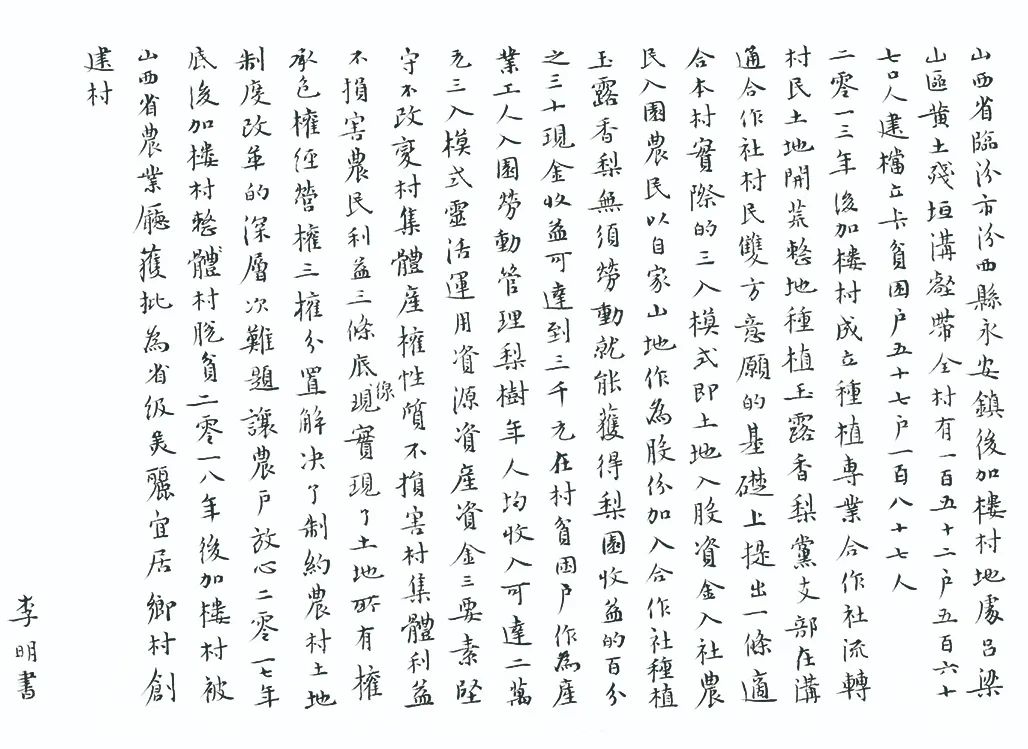 山西省臨汾市汾西縣永安鎮後加樓村地處呂梁
山區黄土殘垣溝壑帶全村有一百五十二户五百六十
七口人建檔立卡貧困户五十七户一百八十七人
二零一三年後加楼村成立種植專業合作社流轉
村民土地開荒整地種植玉露香梨黨支部在溝
通合作社村民雙方意願的基礎上提出一條適
合本村實際的三入模式即土地入股資金入社農
民入園農民以自家山地作為股份加入合作社種植
玉露香梨無須勞動就能獲得梨園收益的百分
之三十現金收益可達到三千元在村貧困户作為産
業工人入園勞動管理梨樹年人均收入可達二萬
元三入模式靈活運用資源資産資金三要素堅
守不改變村集體産權性質不損害村集體利益
不損害農民利益三條底線現實現了土地所有權
承包權經營權三權分置解决了制約農村土地
制度改革的深層次難題讓農户放心二零一七年
底後加樓村整體村脱貧二零一八年後加樓村被
山西省農業廳獲批為省级美麗宜居鄉村創
建村
李明書